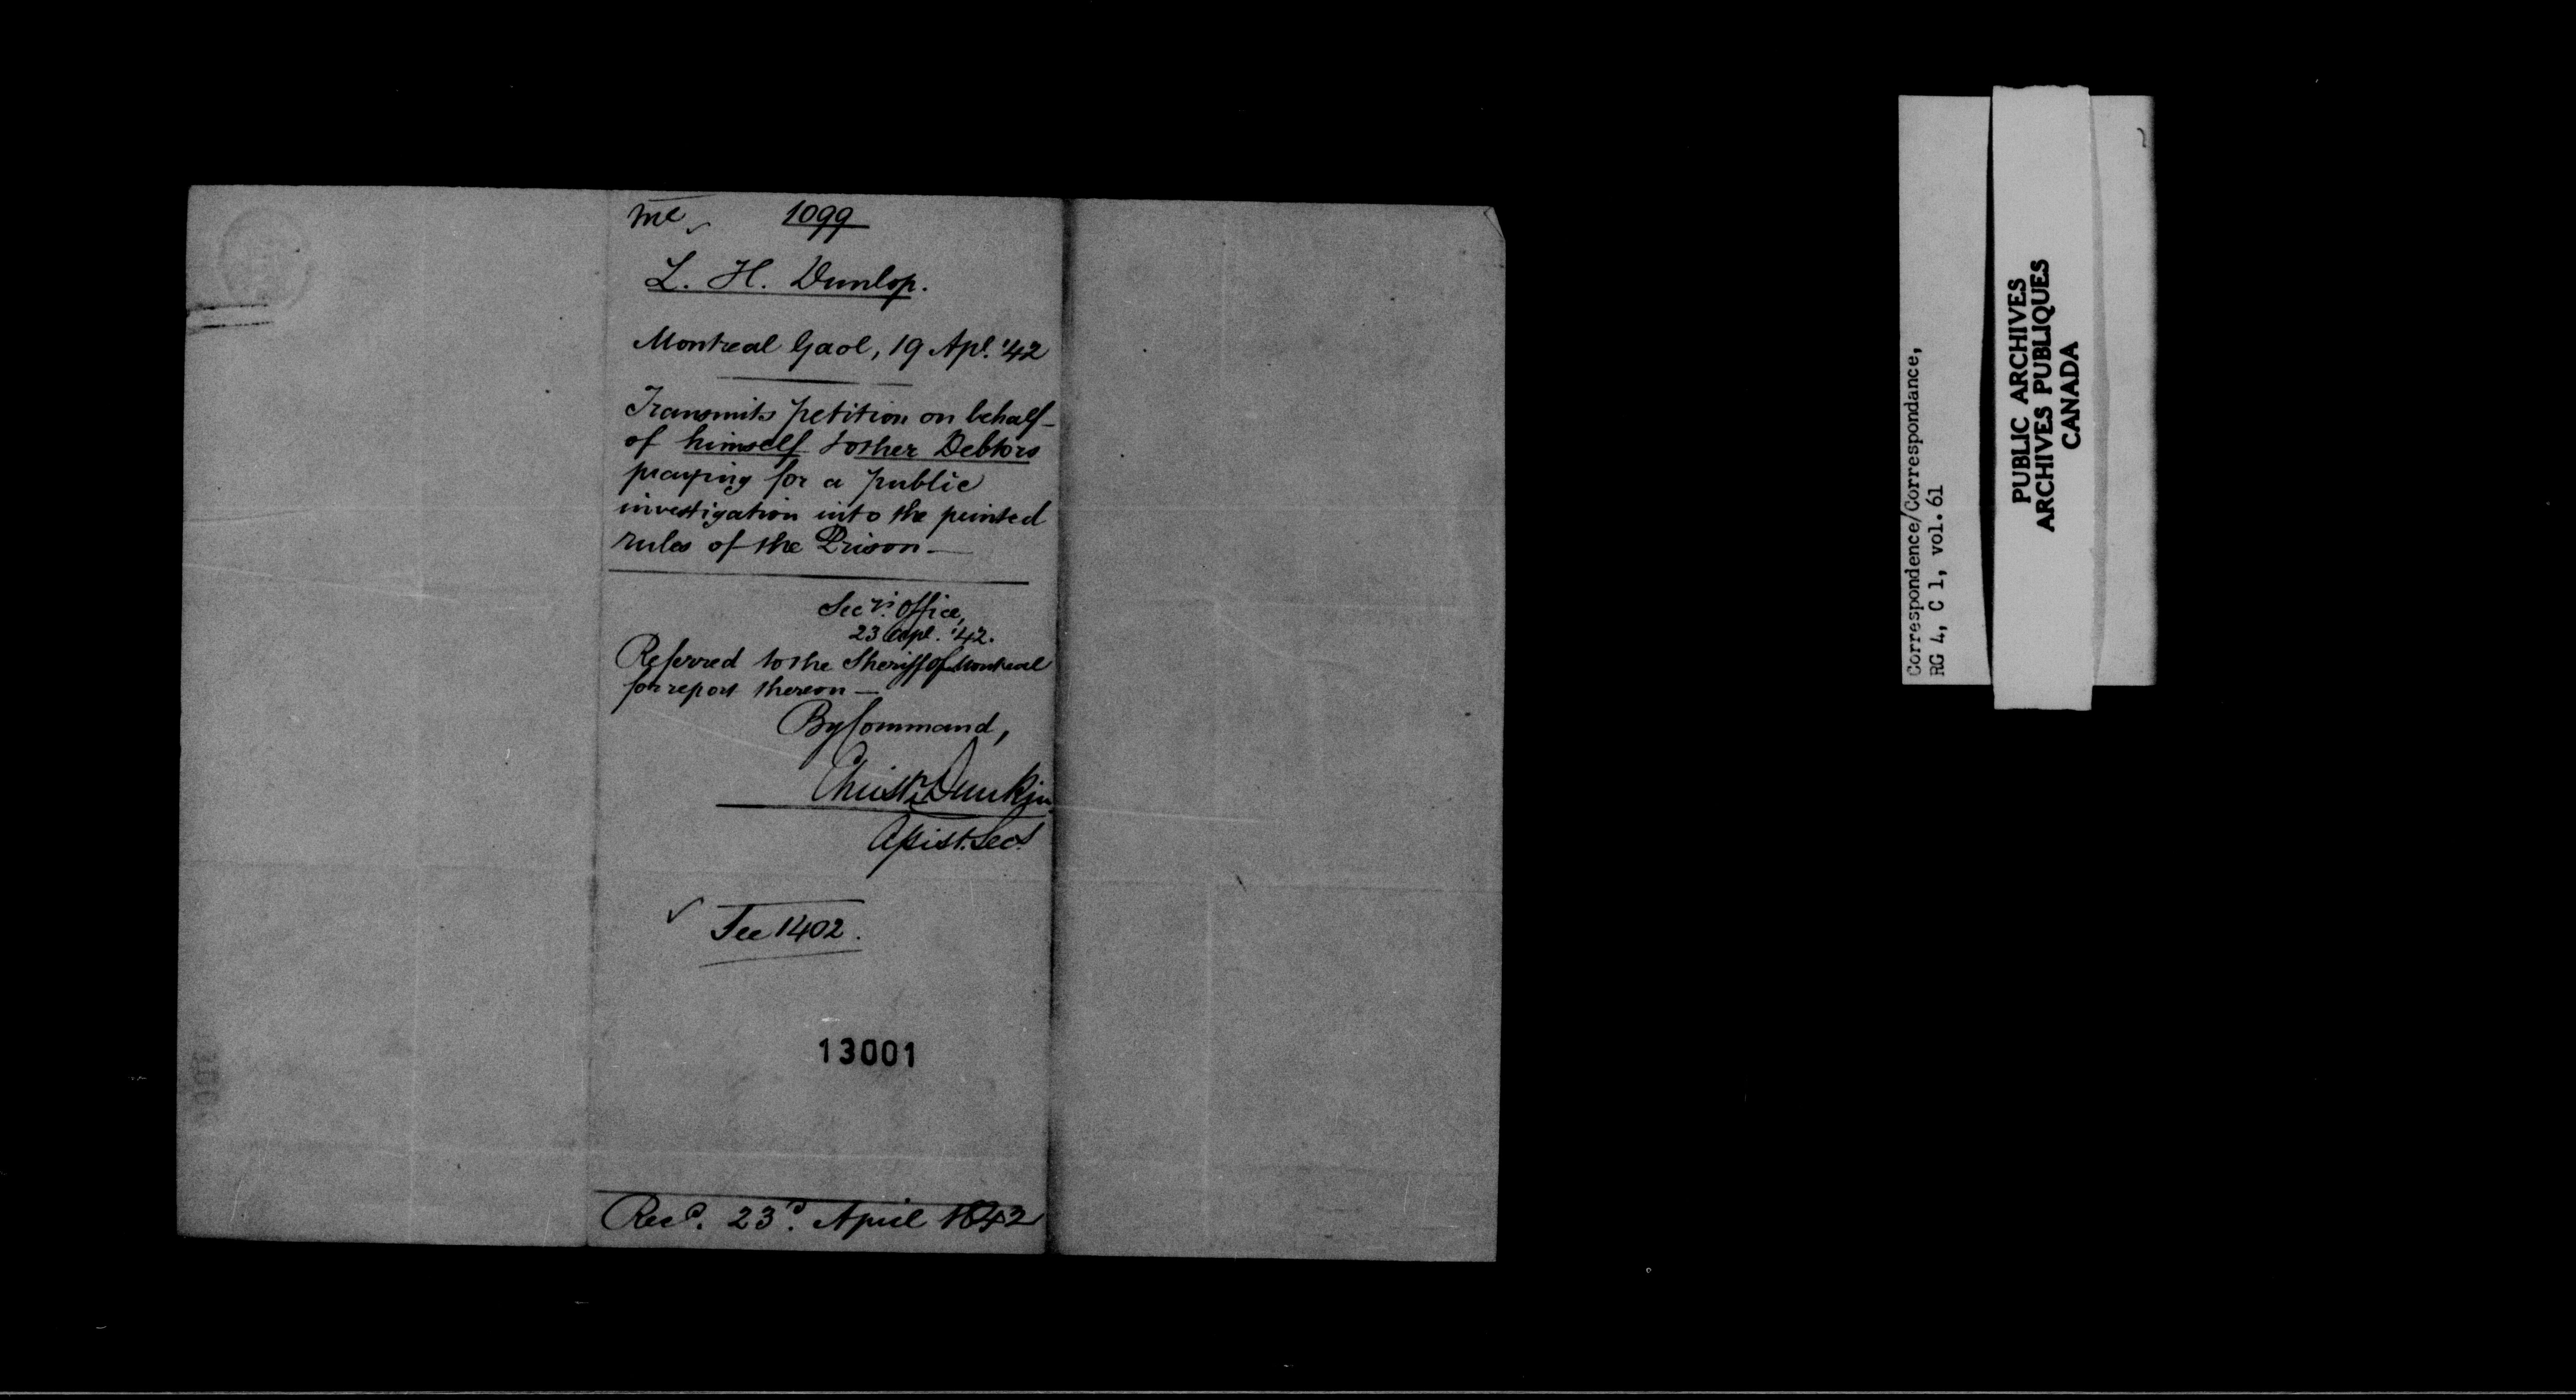 me 1099
L. H. Dunlop.
Montreal Gaol, 19 Apl. '42
Transmits petition on behalf
of himself & other Debtors
praying for a public
investigation into the printed
rules of the Prison —
Secy's. Office,
23 Apl. '42.
Referred to the Sheriff of Montreal
for report thereon —
By Command,
Christr. Dunkin
Assist. Secy.
See 1402.
13001
Recd. 23d. April 1842
Correspondence/Correspondance,
RG 4, C 1, vol. 61
PUBLIC ARCHIVES
ARCHIVES PUBLIQUES
CANADA